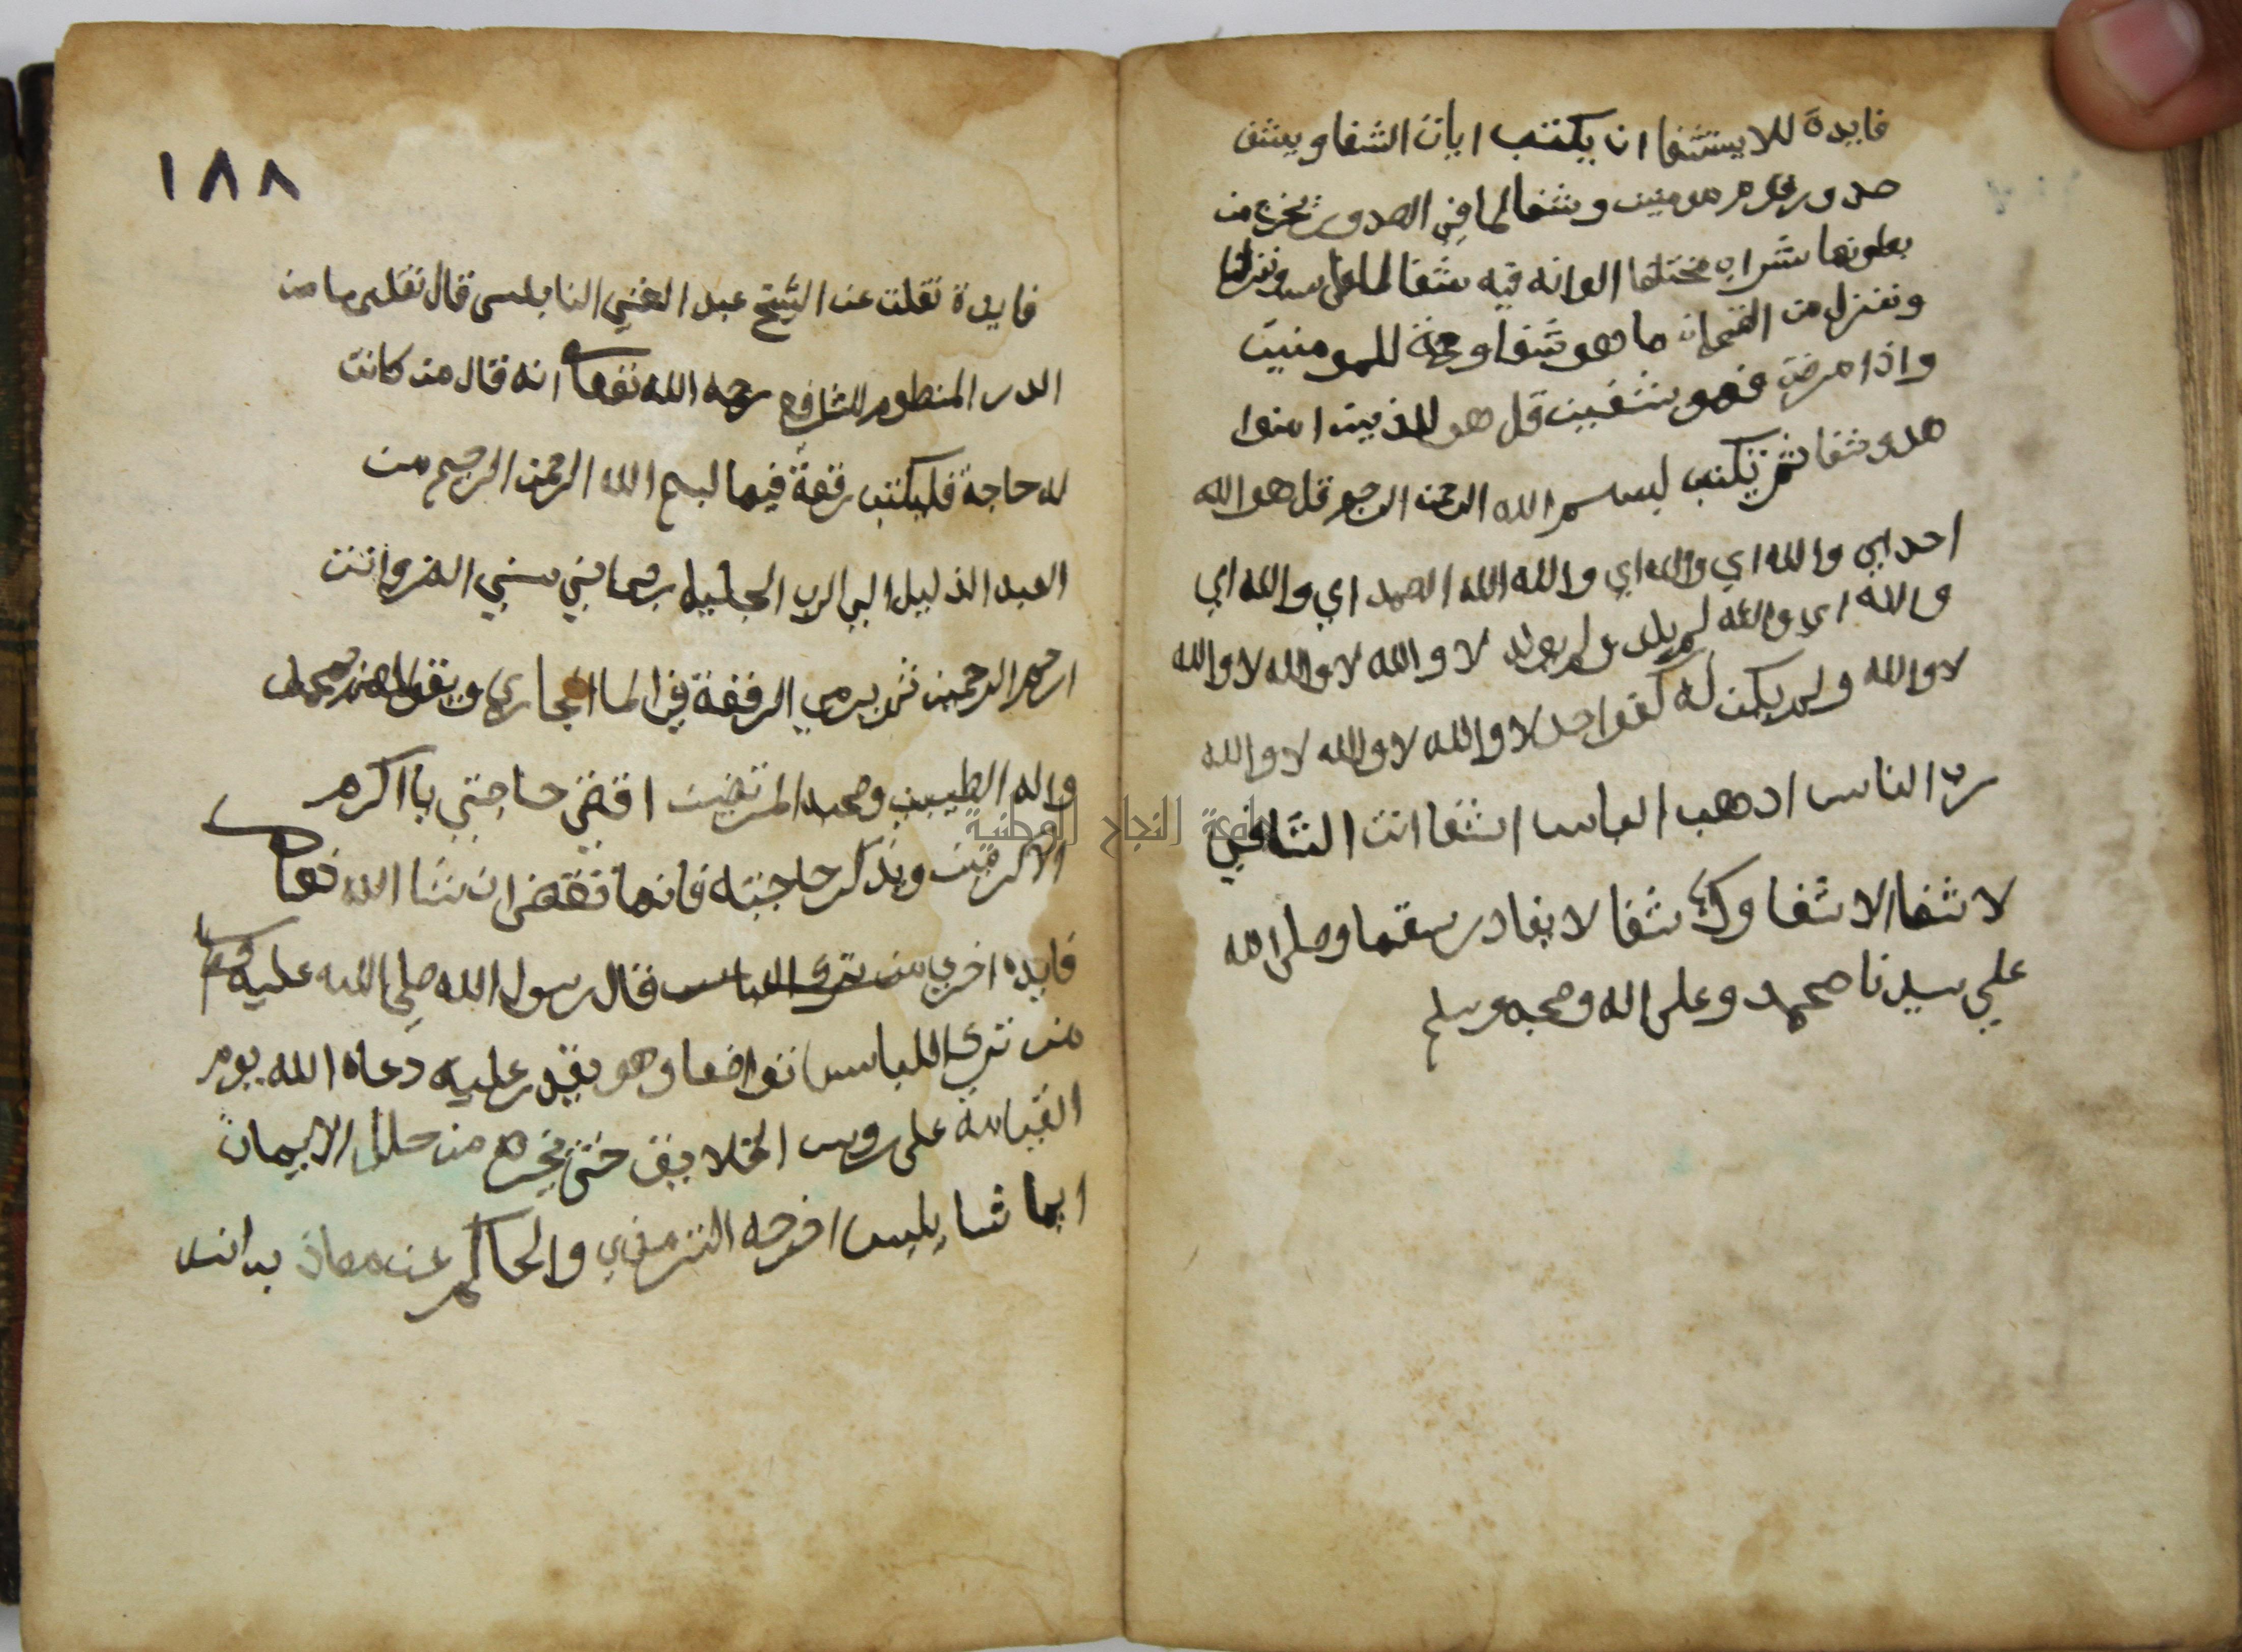 فايدة للاستشفا ان يكتب ايات الشفا ويشف
صدور قوم مومنين وشفا لما في الصدور يخرج من
بطونها شراب مختلفا الوانه فيه شفا للناس وننزل
وننزل من القران ما هو شفا ورحمة للمومنين
واذا مرضت فهو يشفين قل هو للذين امنوا
هدى وشفا ثم تكتب بسم الله الرحمن الرحيم قل هو الله
احد اي والله اي والله اي والله الله الصمد اي والله اي
والله اي والله لم يلد ولم يولد لا والله لا والله لا والله
لا والله ولم يكن له كفوا احد لا والله لا والله لا والله
رب الناس ادهب الباس اشفا انت الشافي
لا شفا الا شفاوك شفا لا يغادر سقما وصلى الله
علي سيدنا محمد وعلى اله وصحبه وسلم
١٨٨
فايدة نقلت عن الشيخ عبد الغني النابلسي قال نقلها من
الدر المنظوم للشافع رحمه الله تعالى انه قال من كانت
له حاجة فليكتب رقعة فيها بسم الله الرحمن الرحيم من
العبد الذليل الي الرب الجليل رب اني مسني الضر وانت
ارحم الرحمين ثم يرمي الرقعة في الما الجاري ويقول اللهم بمحمد
واله الطيبين وصحبه المرتضين اقضي حاجتي يا اكرم
الاكرمين ويذكر حاجته فانها تقضي ان شا الله تعالى
فايده اخري من ترك الباس قال رسول الله صلي الله عليه وسلم
من ترك اللباس تواضعا وهو يقدر عليه دعاه الله يوم
القيامة على روس الخلايق حتى يخيره من حلل الايمان
ايها شا يلبس اخرجه الترمذي والحاكم عن معاذ بن انس
جامعة النجاح الوطنية